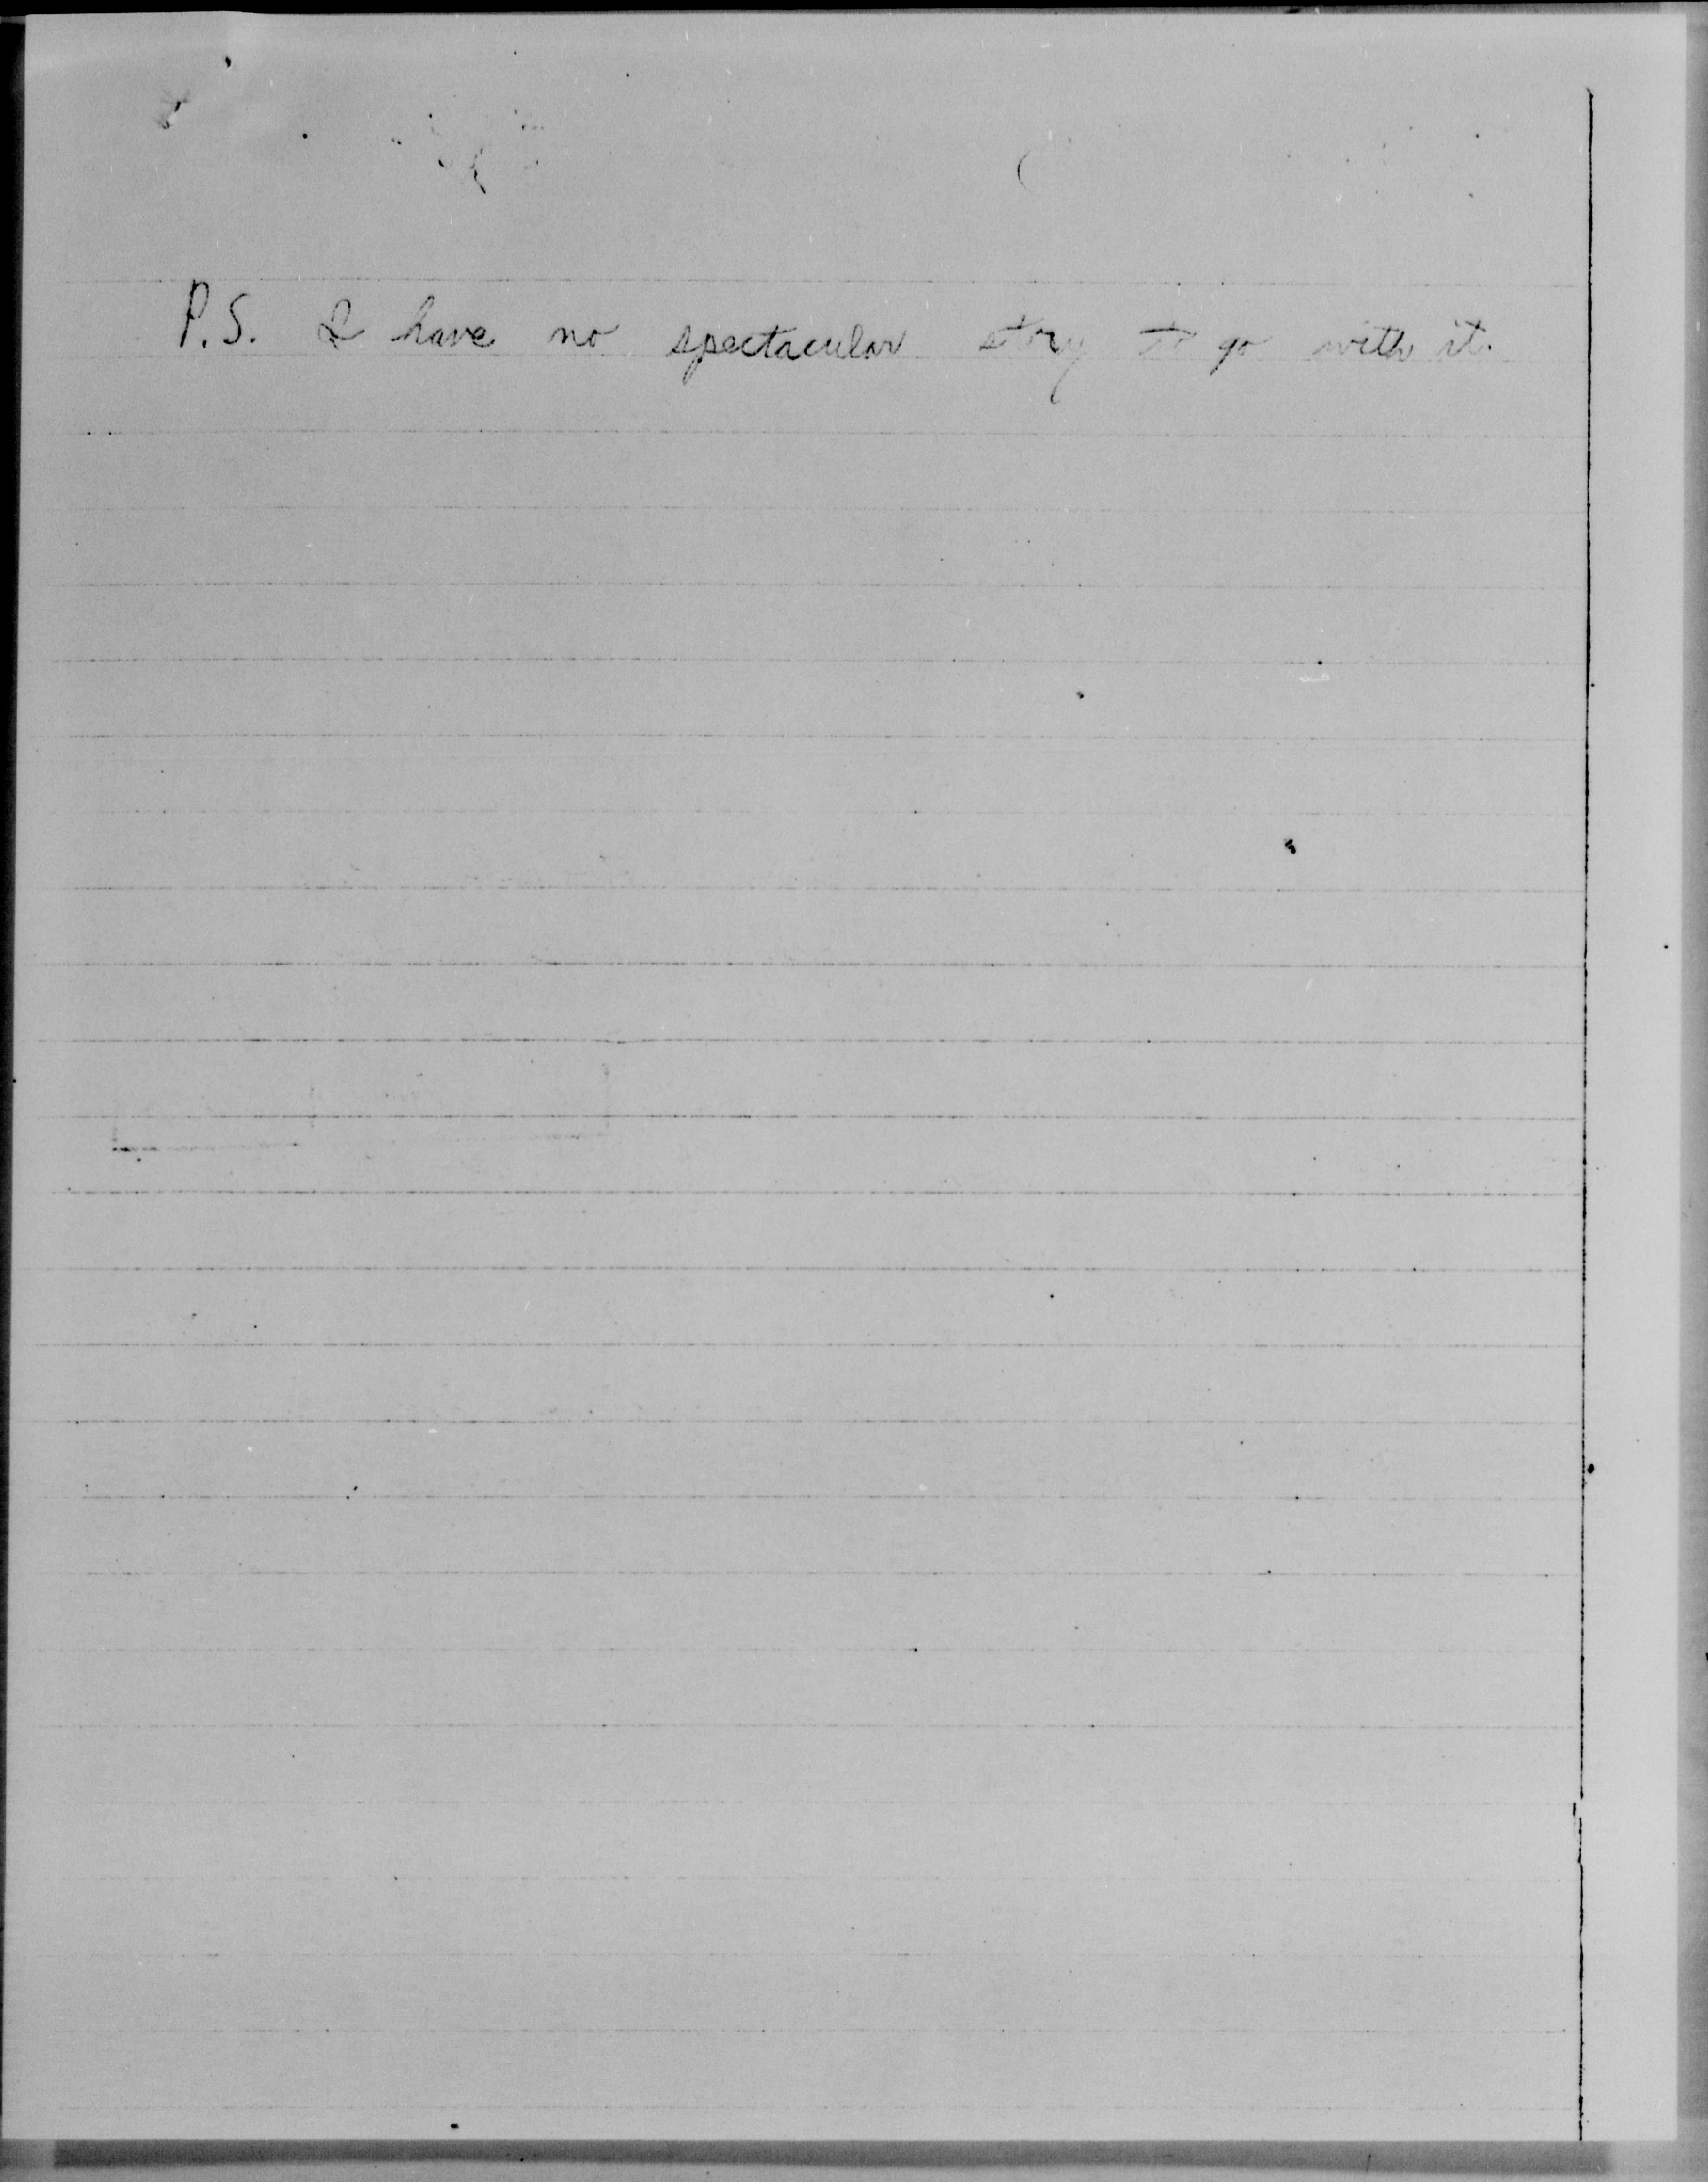 P.S. I have no spectacular story to go with it.